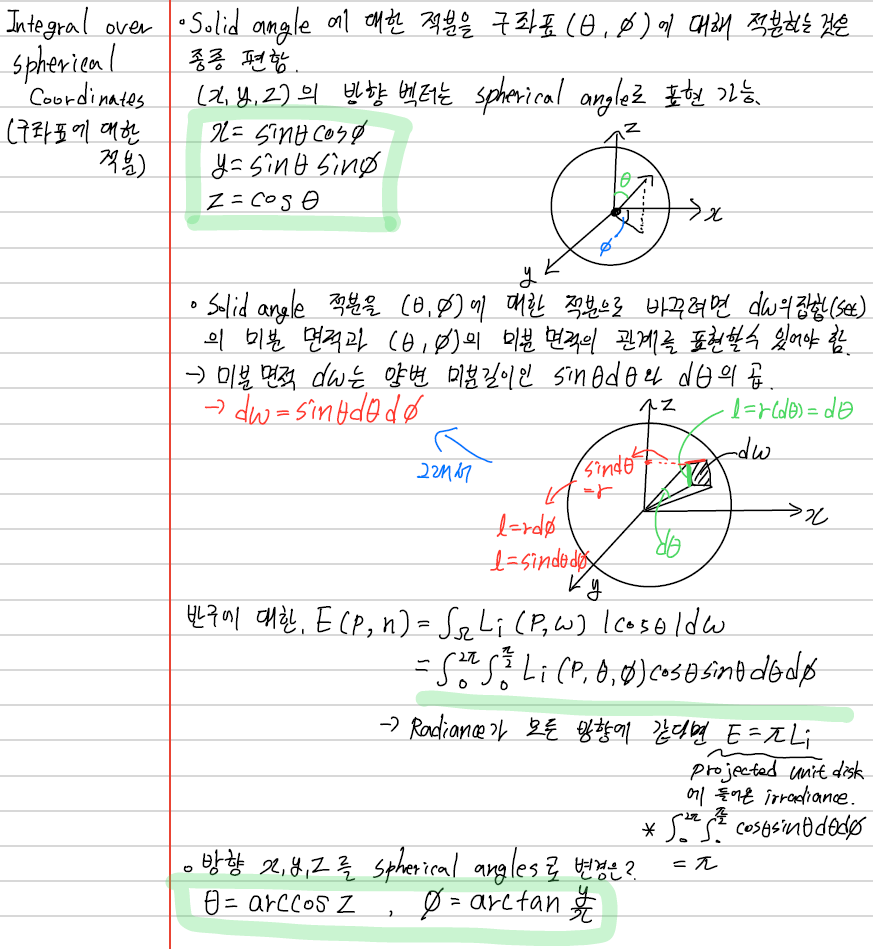 Integral over
spherical
Coordinates
(구좌표에 대한
적분)
• Solid angle 에 대한 적분을 구좌표 (θ, ϕ)에 대해 적분하는 것은
종종 편함.
(x, y, z) 의 방향 벡터는 spherical angle로 표현 가능.
x = sinθ cosϕ
y = sinθ sinϕ
z = cos θ
z
θ
x
ϕ
y
• Solid angle 적분을 (θ, ϕ)에 대한 적분으로 바꾸려면 dω의 집합(set)
의 미분 면적과 (θ, ϕ)의 미분 면적의 관계를 표현할수 있어야 함.
→ 미분 면적 dω는 양변 미분길이인 sinθdθ와 dθ의 곱.
→ dω = sinθdθdϕ
그래서
z
l = r(dθ) = dθ
dω
sindθ
= r
l = rdϕ
l = sindθdϕ
dθ
x
y
반구에 대한, E(p, n) = ∫Ω Li (p, ω) |cosθ|dω
= ∫₀^2π ∫₀^π/2 Li (p, θ, ϕ) cosθ sinθ dθ dϕ
→ Radiance가 모든 방향에 같다면 E = πLi
projected unit disk
에 들어온 irradiance.
* ∫₀^2π ∫₀^π/2 cosθsinθdθdϕ
= π
• 방향 x, y, z 를 spherical angles로 변경은?
θ = arccos z , ϕ = arctan y/x